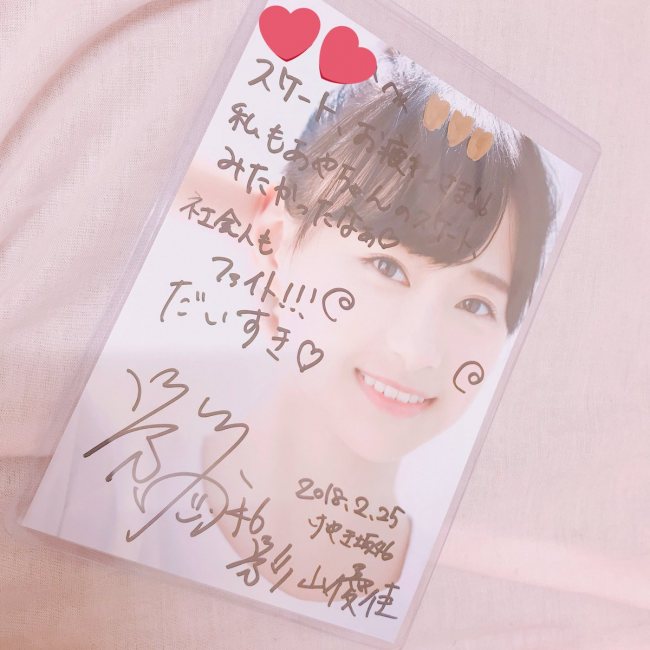 へ
スケート、お疲れさま!!
私もあやちゃんのスケート
みたかったなぁ♡
社会人も
ファイト!!!
だいすき♡
2018.2.25
けやき坂46
影山優佳